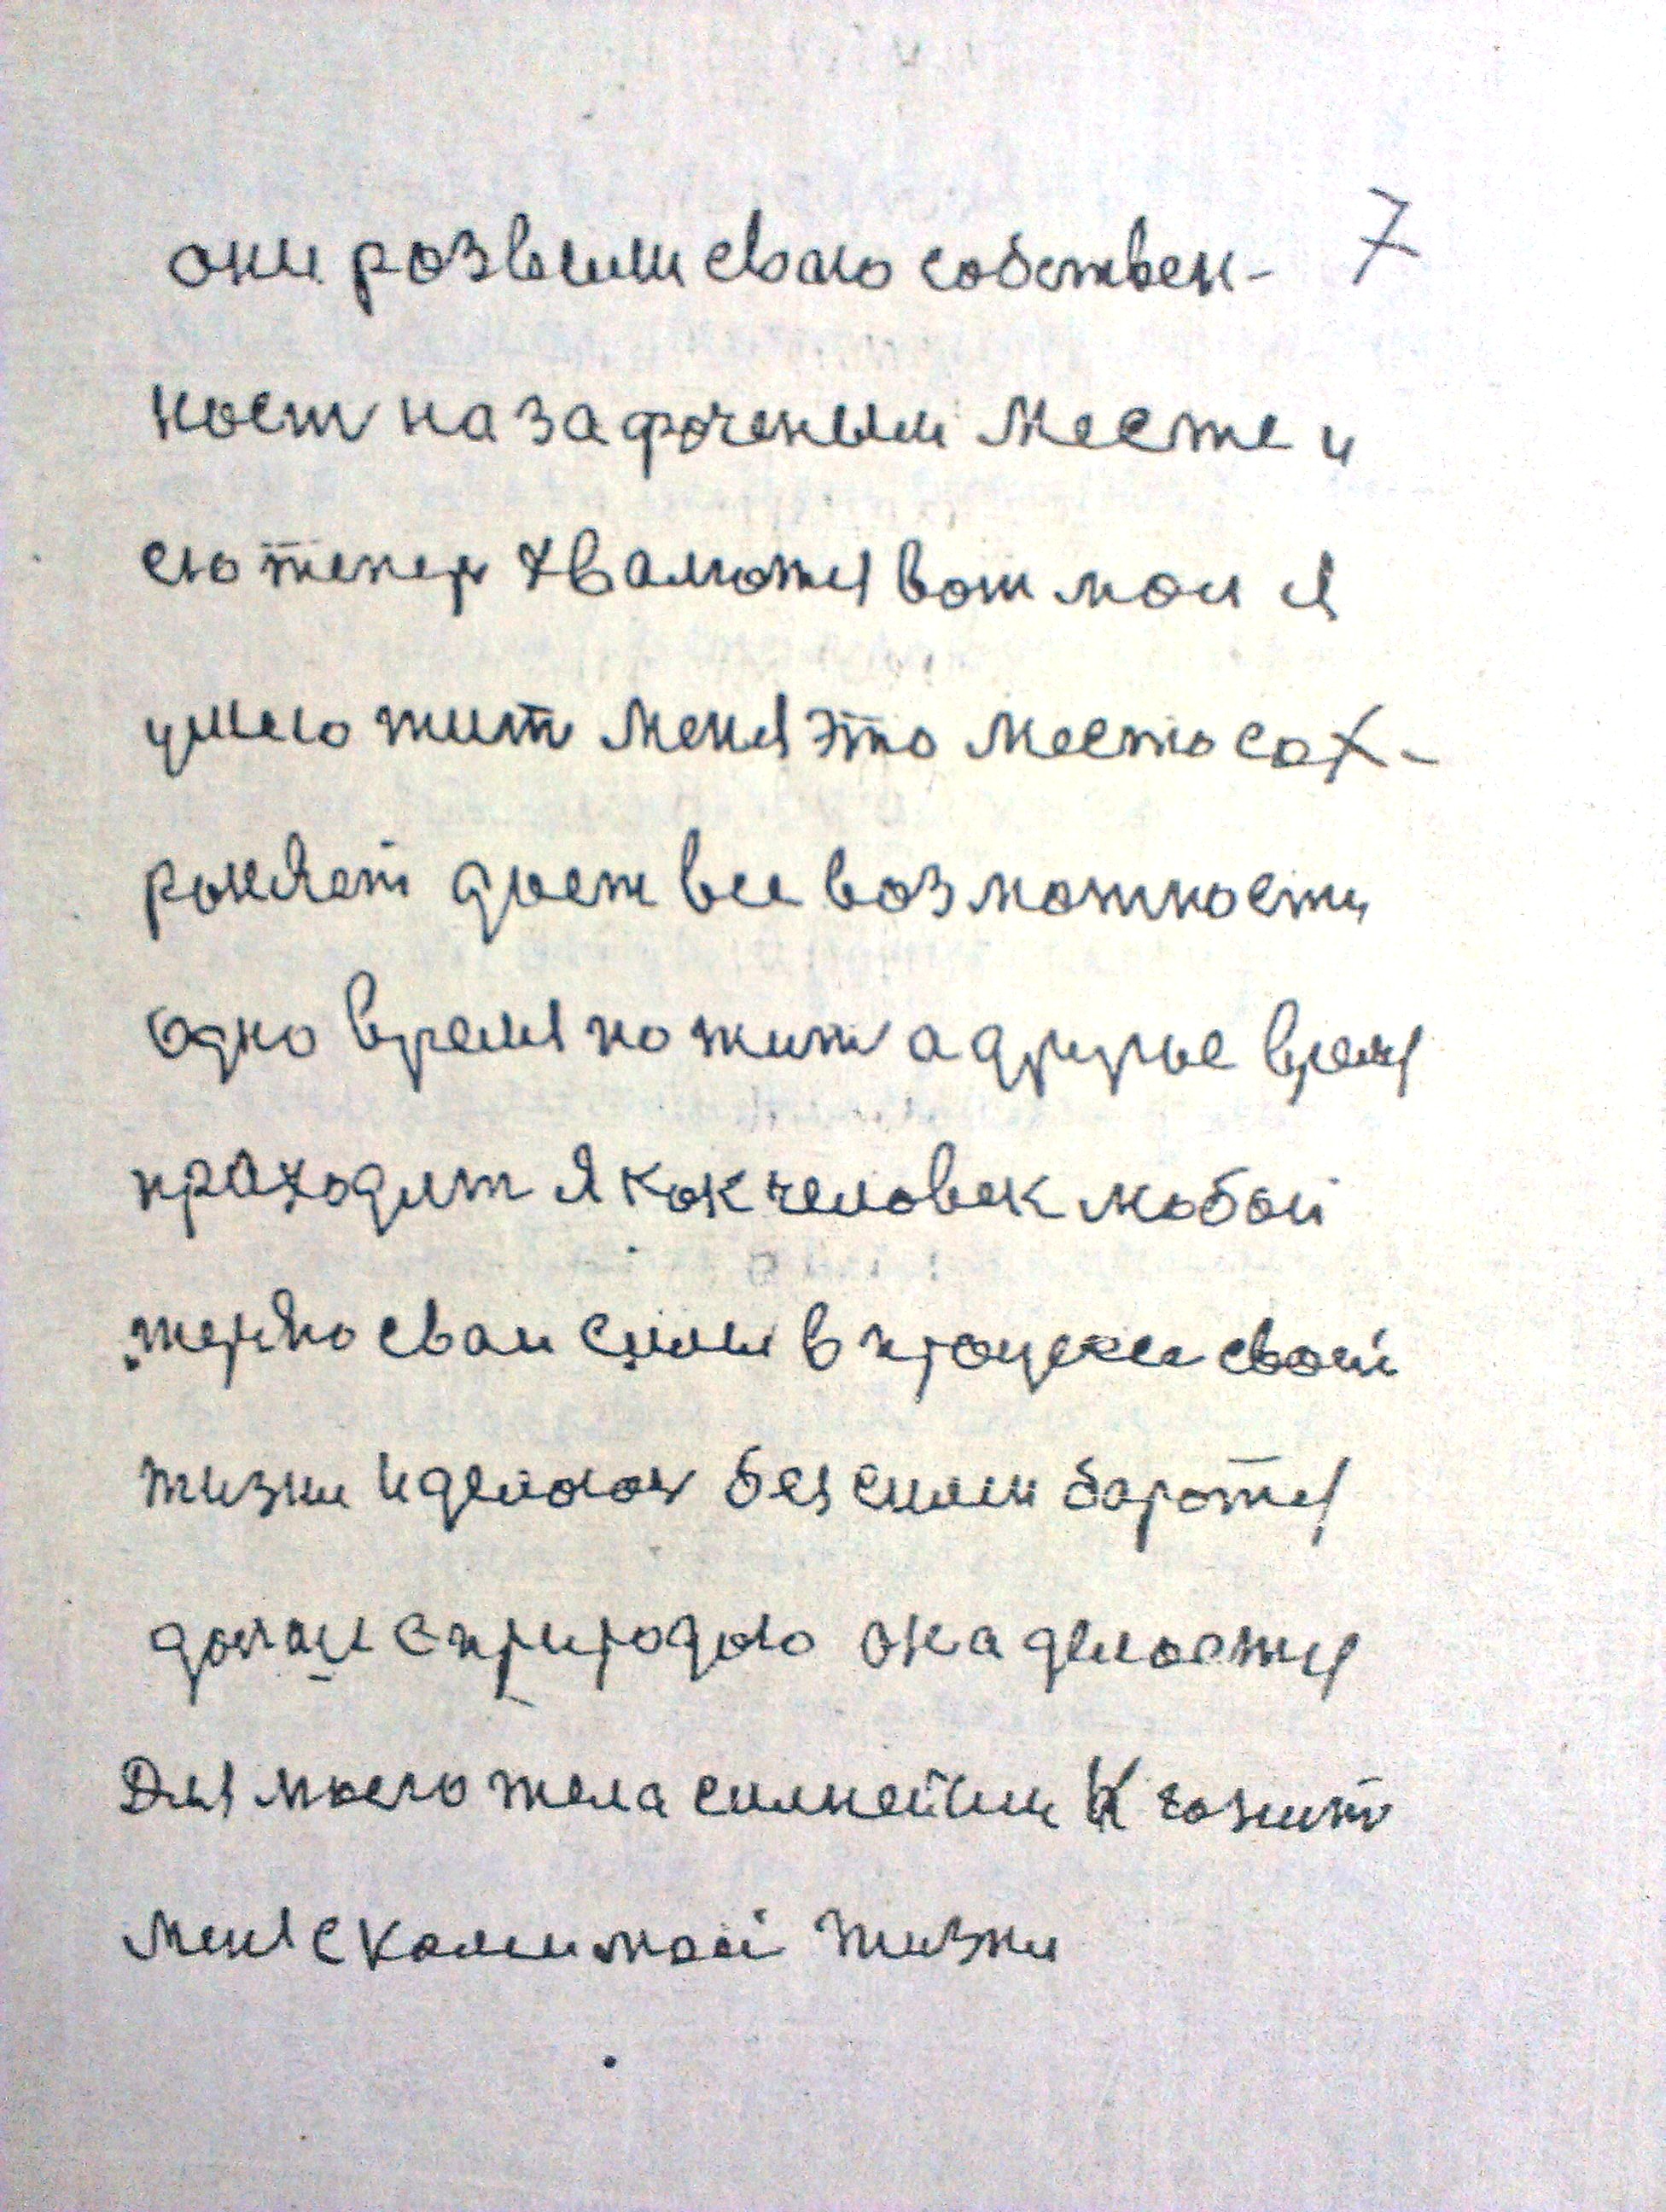 они розвели сваю собствен- 7
ност на захвоченым месте и
ею тепер хвалютя вот мои я
умею жит меня это место сох-
роняет дает все возможности
одно время пожит а другое время
проходит я как человек любой
теряю сваи силы в процессе своей
жизни и делаюс без силы баротя
дальше с природаю она делается
для моего тела силнейшие
меня с колеи моей жизни